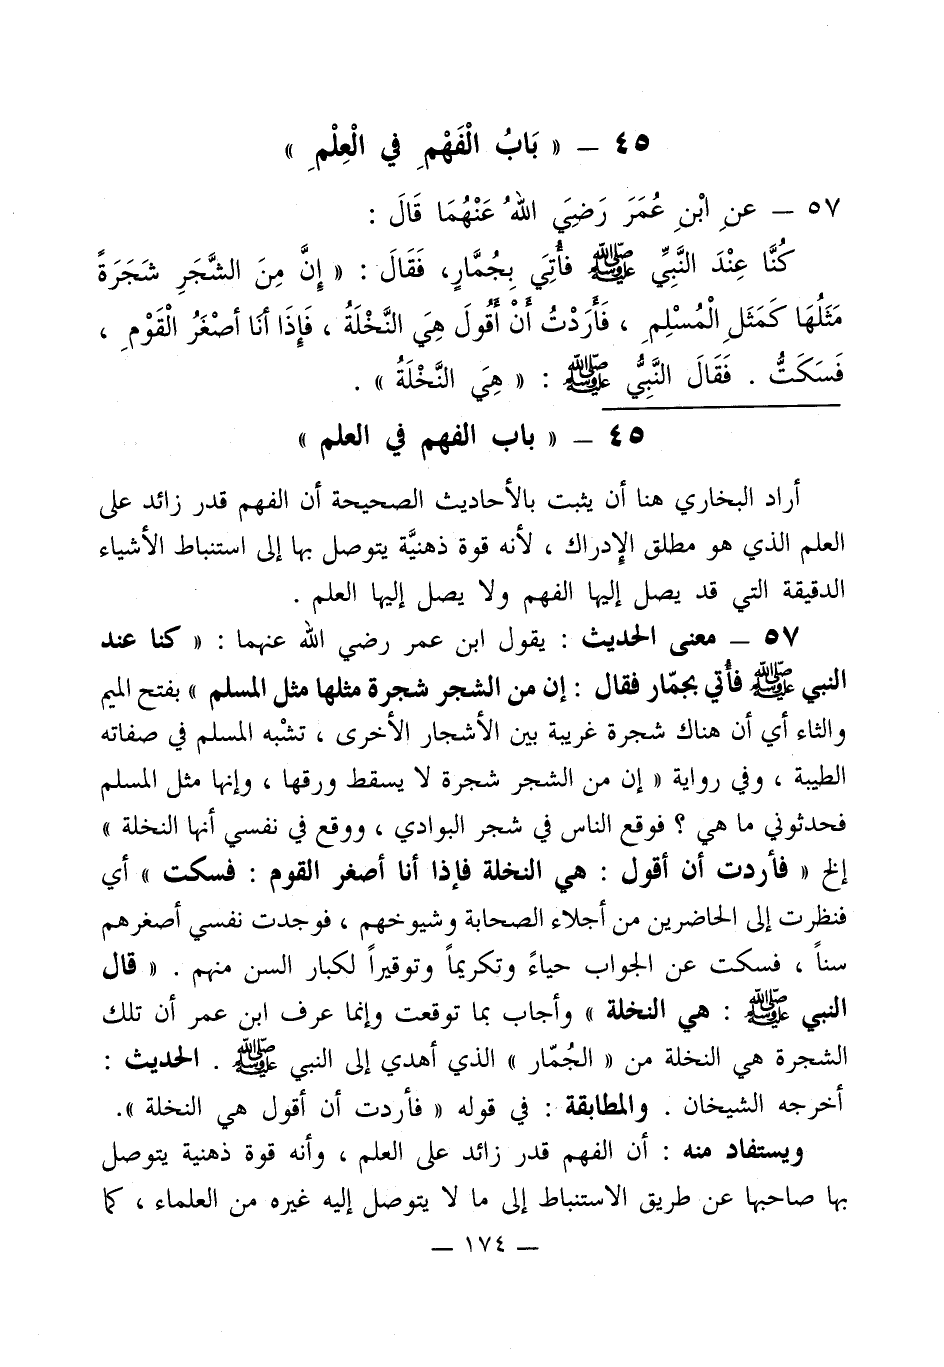 ٤٥ – « بَابُ الْفَهْمِ فِي الْعِلْمِ »
٥٧ – عنِ ابْنِ عُمَرَ رَضِيَ اللهُ عَنْهُمَا قَالَ :
كُنَّا عِنْدَ النَّبِيِّ ﷺ فأُتِيَ بِجُمَّارٍ، فَقَالَ : « إِنَّ مِنَ الشَّجَرِ شَجَرَةً
مَثَلُهَا كَمَثَلِ الْمُسْلِمِ ، فَأَرَدْتُ أَنْ أَقُولَ هِيَ النَّخْلَةُ ، فَإِذَا أنَا أصْغَرُ الْقَوْمِ ،
فَسَكَتُّ . فَقَالَ النَّبِيُّ ﷺ : « هِيَ النَّخْلَةُ » .
٤٥ – « باب الفهم في العلم »
أراد البخاري هنا أن يثبت بالأحاديث الصحيحة أن الفهم قدر زائد على
العلم الذي هو مطلق الإدراك ، لأنه قوة ذهنيَّة يتوصل بها إلى استنباط الأشياء
الدقيقة التي قد يصل إليها الفهم ولا يصل إليها العلم .
٥٧ – معنى الحديث : يقول ابن عمر رضي الله عنهما : « كنا عند
النبي ﷺ فأُتي بجمّار فقال : إن من الشجر شجرة مثلها مثل المسلم » بفتح الميم
والثاء أي أن هناك شجرة غريبة بين الأشجار الأخرى ، تشْبه المسلم في صفاته
الطيبة ، وفي رواية « إن من الشجر شجرة لا يسقط ورقها ، وإنها مثل المسلم
فحدثوني ما هي ؟ فوقع الناس في شجر البوادي ، ووقع في نفسي أنها النخلة »
إلخ « فأردت أن أقول : هي النخلة فإذا أنا أصغر القوم : فسكت » أي
فنظرت إلى الحاضرين من أجلاء الصحابة وشيوخهم ، فوجدت نفسي أصغرهم
سناً ، فسكت عن الجواب حياءً وتكريماً وتوقيراً لكبار السن منهم . « قال
النبي ﷺ : هي النخلة » وأجاب بما توقعت وإنما عرف ابن عمر أن تلك
الشجرة هي النخلة من « الجُمّار » الذي أهدي إلى النبي ﷺ . الحديث :
أخرجه الشيخان . والمطابقة : في قوله « فأردت أن أقول هي النخلة ».
ويستفاد منه : أن الفهم قدر زائد على العلم ، وأنه قوة ذهنية يتوصل
بها صاحبها عن طريق الاستنباط إلى ما لا يتوصل إليه غيره من العلماء ، كما
– ١٧٤ –